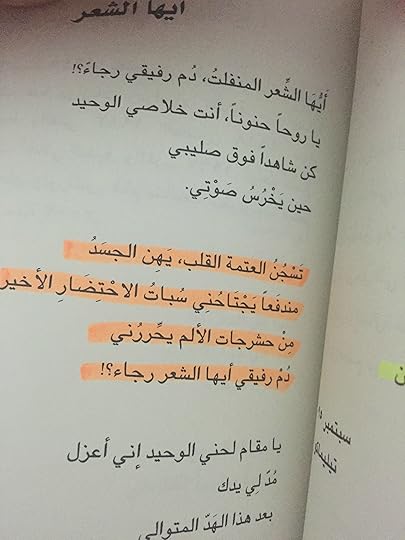 أيها الشعر
أَيُّهَا الشِّعر المنفلتُ، دُم رفيقي رجاءً؟!
يا روحاً حنوناً، أنت خلاصي الوحيد
كن شاهداً فوق صليبي
حين يَخْرُسُ صَوْتِي.
تَسْجُنُ العتمة القلب، يَهِن الجسَدُ
مندفعاً يَجْتَاحُنِي سُباتُ الاحْتِضَارِ الأخير
مِنْ حشرجات الألم يحِّررُني
دُمْ رفيقي أيها الشعر رجاء؟!
يا مقام لحني الوحيد إني أعزل
مُدّ لِي يدك
بعد هذا الهَدّ المتوالي
سبتمبر